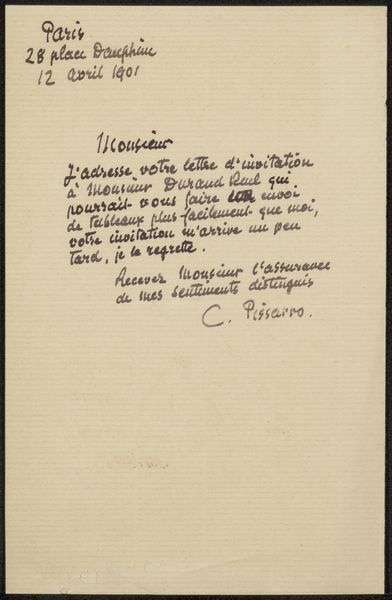 Paris
28 place Dauphine
12 avril 1901
Monsieur
J'adresse votre lettre d'invitation
à Monsieur Durand Ruel qui
pourrait vous faire envoi
de tableaux plus facilement que moi,
votre invitation m'arrive un peu
tard, je le regrette.
Recevez Monsieur l'assurance
de mes sentiments distingués
C. Pissarro.